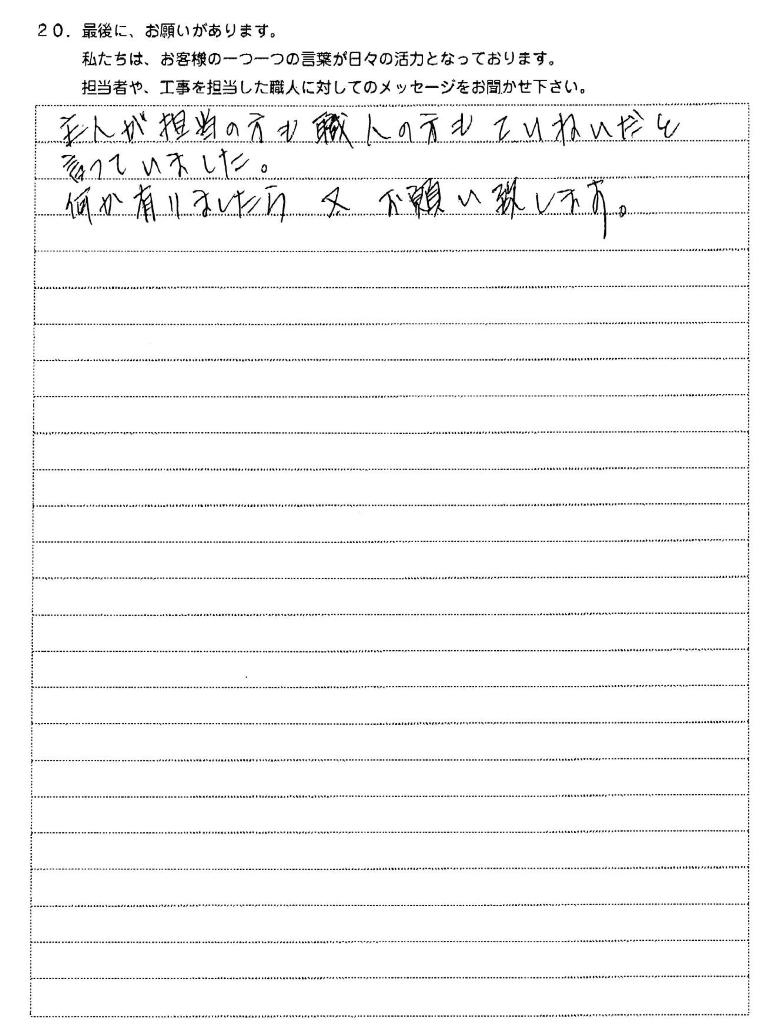 20. 最後に、お願いがあります。
私たちは、お客様の一つ一つの言葉が日々の活力となっております。
担当者や、工事を担当した職人に対してのメッセージをお聞かせ下さい。
主人が担当の方も職人の方もていねいだと
言っていました。
何か有りましたら又お願い致します。